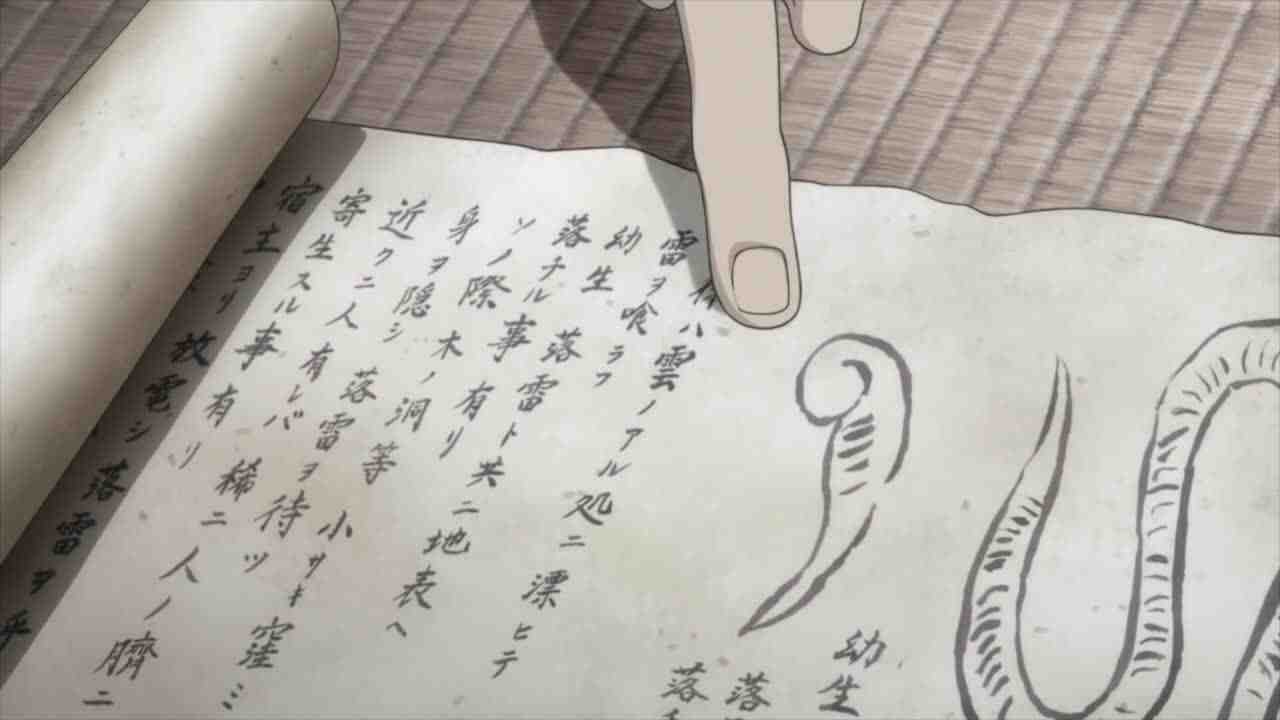 ハ雲ノアル処ニ漂ヒテ
雷ヲ喰ラフ
幼生 落雷ト共ニ地表へ
落チル事有リ
ソノ際 木ノ洞等 小サキ窪ミ
身ヲ隠シ 落雷ヲ待ツ
近クニ人有レバ 稀ニ人ノ臍ニ
寄生スル事有リ
宿主ヨリ放電シ 落雷ヲ
幼生
落
落